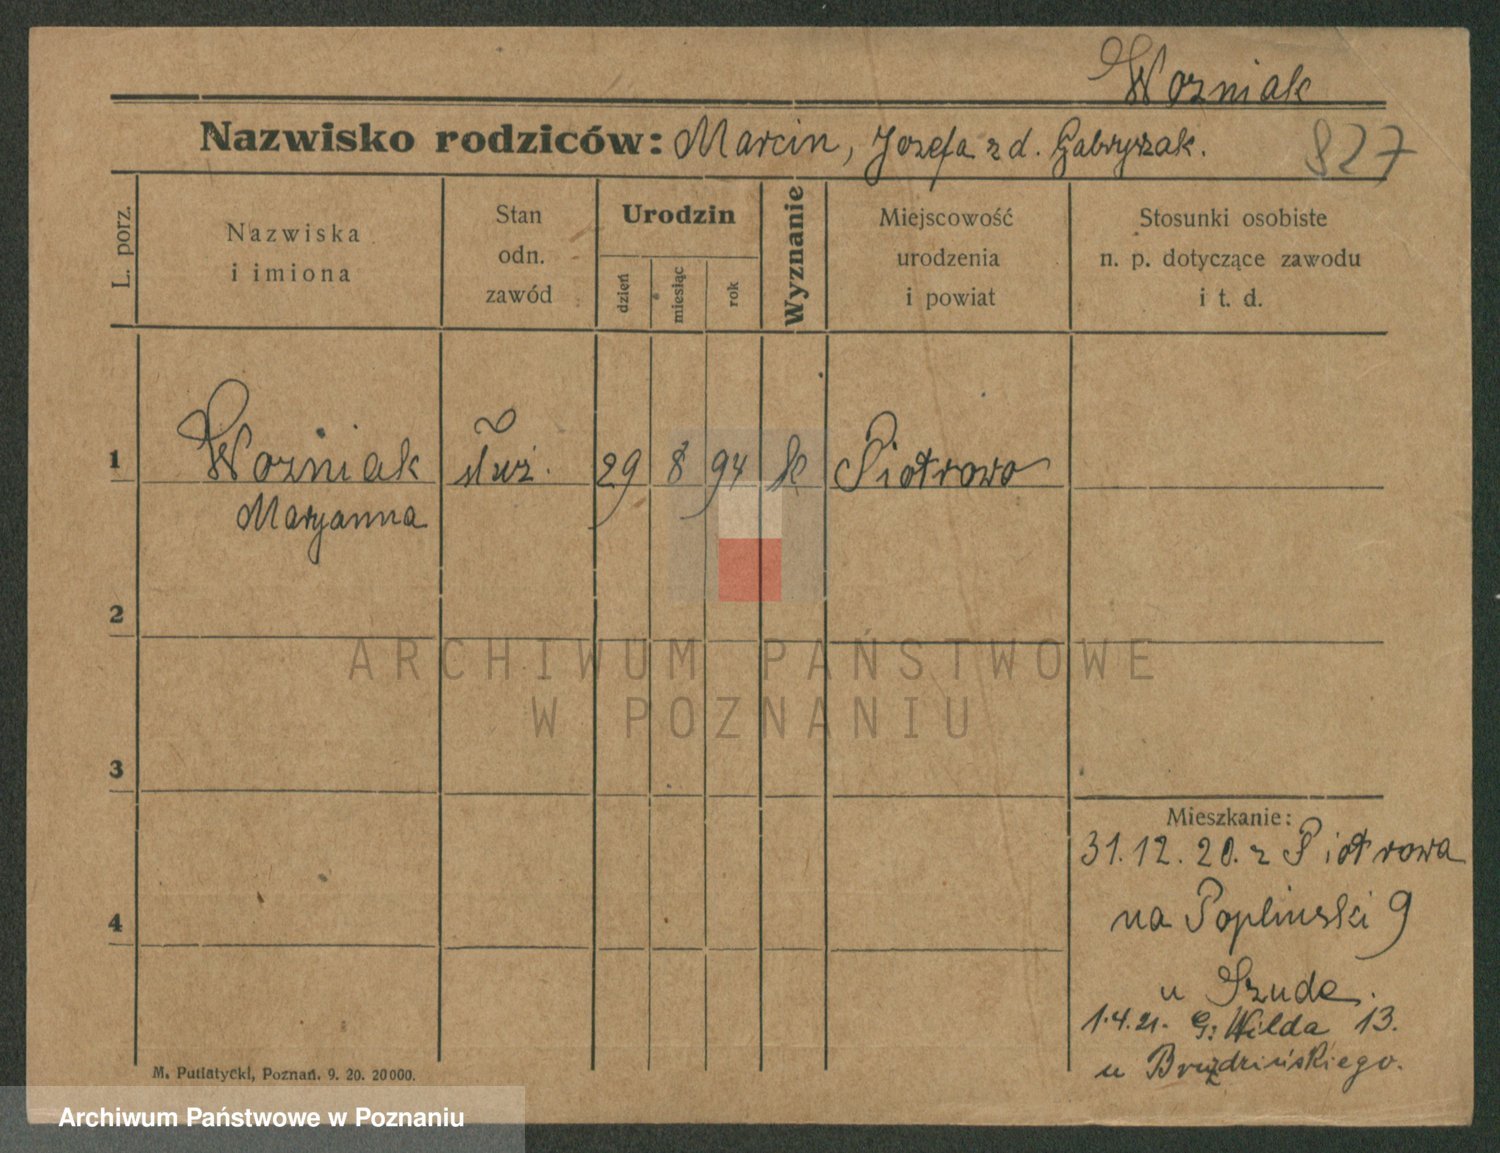 Wozniak
Nazwisko rodziców: Marcin, Jozefa z d. Gabryszak.
827
L. porz.
Nazwiska
i imiona
Stan
odn.
zawód
Urodzin
dzień
miesiąc
rok
Wyznanie
Miejscowość
urodzenia
i powiat
Stosunki osobiste
n. p. dotyczące zawodu
i t. d.
1 Wozniak służ. 29 8 94 k Piotrowo
Maryanna
2
ARCHIWUM PAŃSTWOWE
W POZNANIU
3
Mieszkanie:
31.12.20. z Piotrowa
4
na Poplinski 9
u Szuda.
1.4.21. G. Wilda 13.
u Bruździńskiego.
M. Putiatycki, Poznań. 9. 20. 20000.
Archiwum Państwowe w Poznaniu